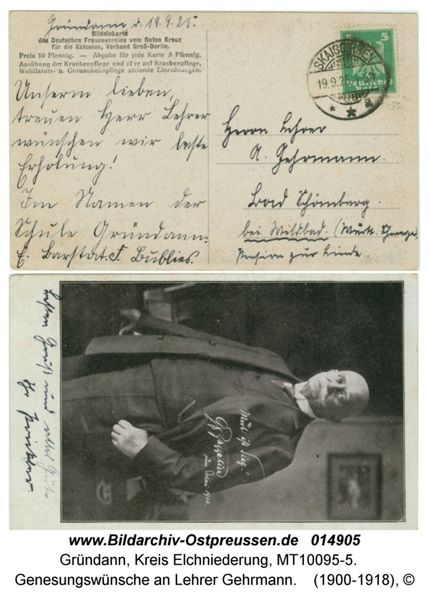 Gründann d. 19.9.25.
Bildniskarte
des Deutschen Frauenvereins vom Roten Kreuz
für die Kolonien, Verband Groß-Berlin.
Preis 10 Pfennig. — Abgabe für jede Karte 5 Pfennig.
Ausübung der Krankenpflege und aller auf Krankenpflege,
Wohlfahrts- u. Gesundheitspflege zielende Einrichtungen.
Unserm lieben,
treuen Herr Lehrer
wünschen wir beste
Erholung!
Im Namen der
Schule Gründann.
E. Barstat. F. Bublies.
SKAISGIRREN
19.9.25
5
Deutsches Reich
Herrn Lehrer
A. Gehrmann.
Bad Schömberg
bei Wildbad (Württ.
Pension zur Linde.
Besten Gruß und alles Gute
Mut ist Sieg!
www.Bildarchiv-Ostpreussen.de 014905
Gründann, Kreis Elchniederung, MT10095-5.
Genesungswünsche an Lehrer Gehrmann. (1900-1918), ©